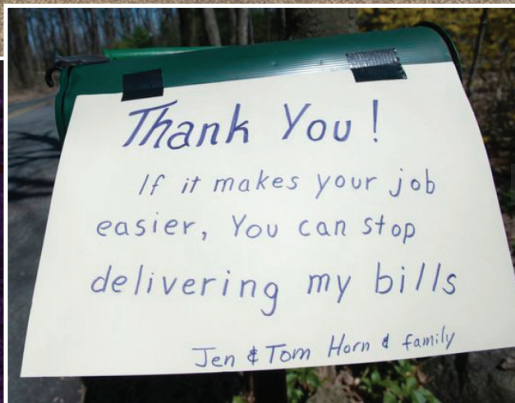 Thank You!
If it makes your job
easier, You can stop
delivering my bills
Jen & Tom Horn & family